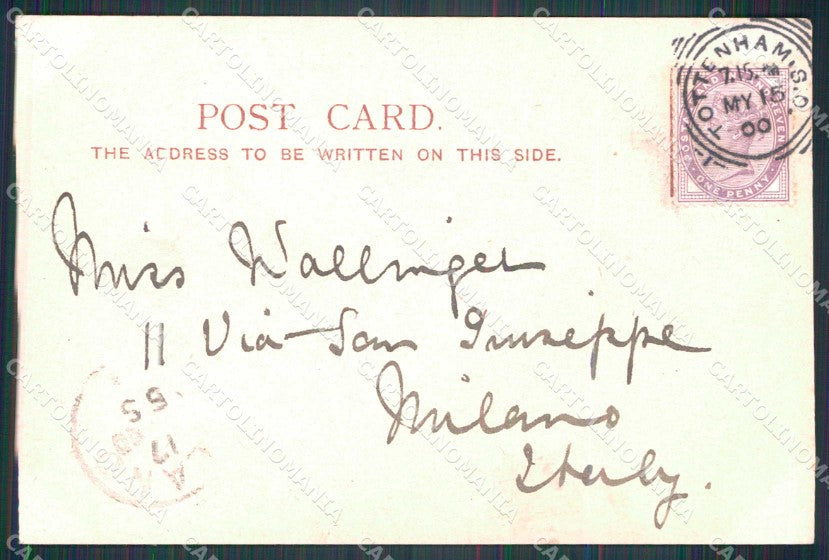 POST CARD.
THE ADDRESS TO BE WRITTEN ON THIS SIDE.
TOTTENHAM. S.O.
7.15
MY 15
00
ONE PENNY
Miss Wallinger
11 Via San Giuseppe
Milano
Italy.
17
CARTOLINOMANIA